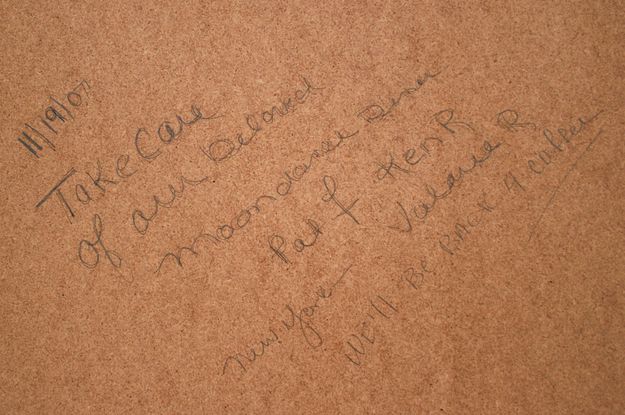 11/19/07
Take Care
of our beloved
moondance Diner
Pat f Ken R
New York Valarie R
We'll Be Back 4 coffee